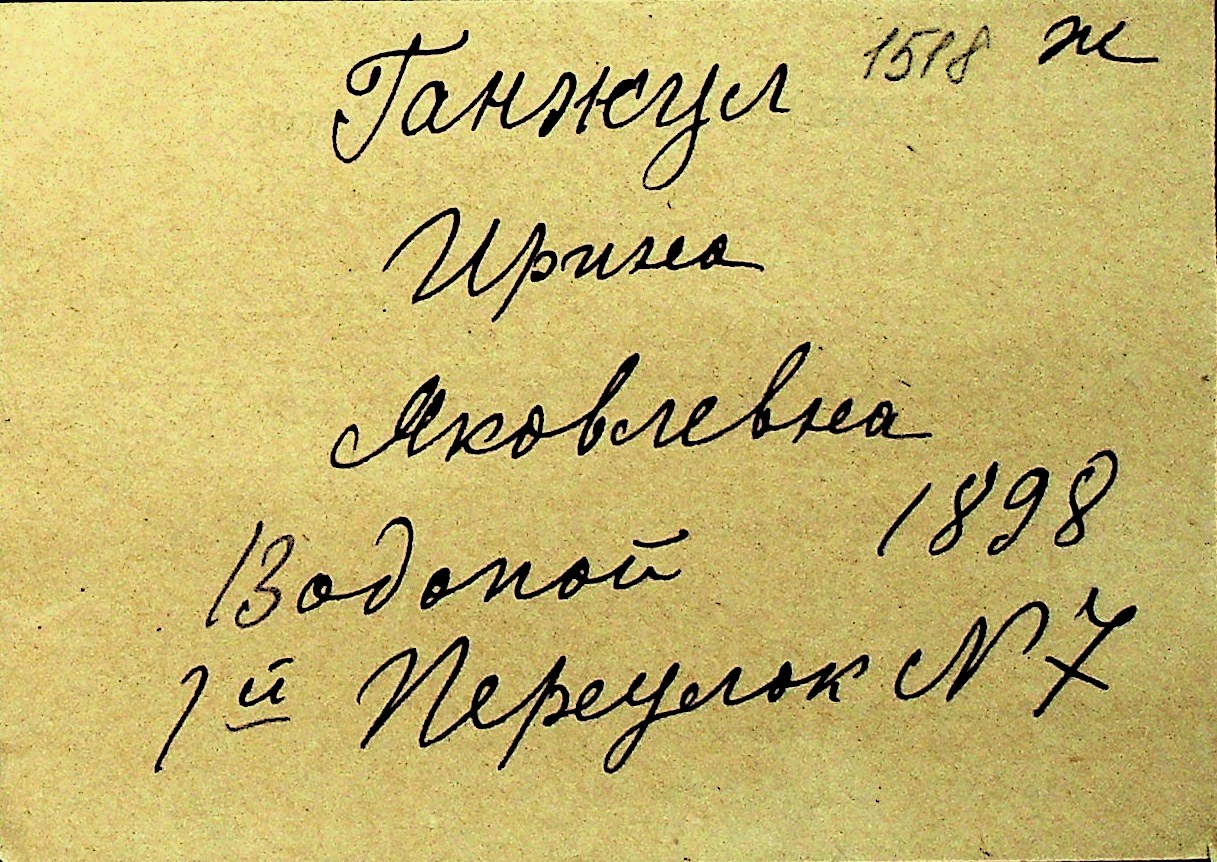 Ганжул 1518 ж
Ирина
Яковлевна
Водопой 1898
1й Переулок N 7